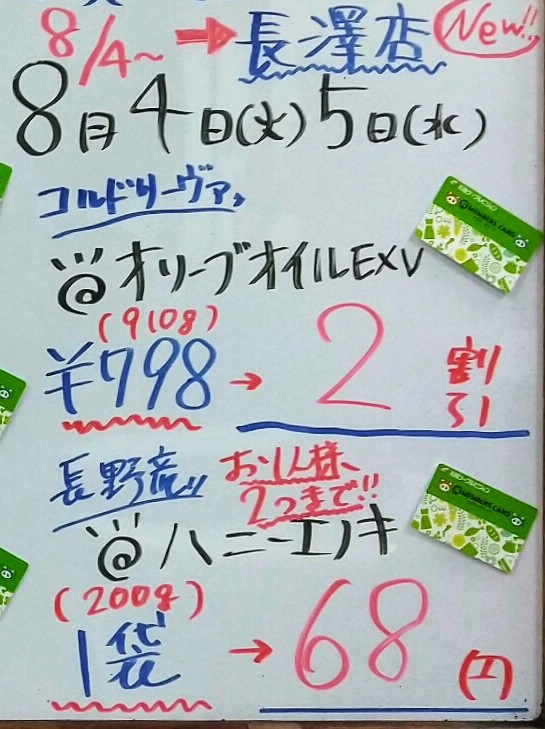 8/4~ → 長澤店 New!!
8月4日(火)5日(水)
コルドリーヴァ
@オリーブオイルEXV
(910g)
¥798 → 2割引
長野産 お1人様、
2つまで!!
@ハニーエノキ
(200g)
1袋 → 68(円)
MEMBERS CARD
MEMBERS CARD